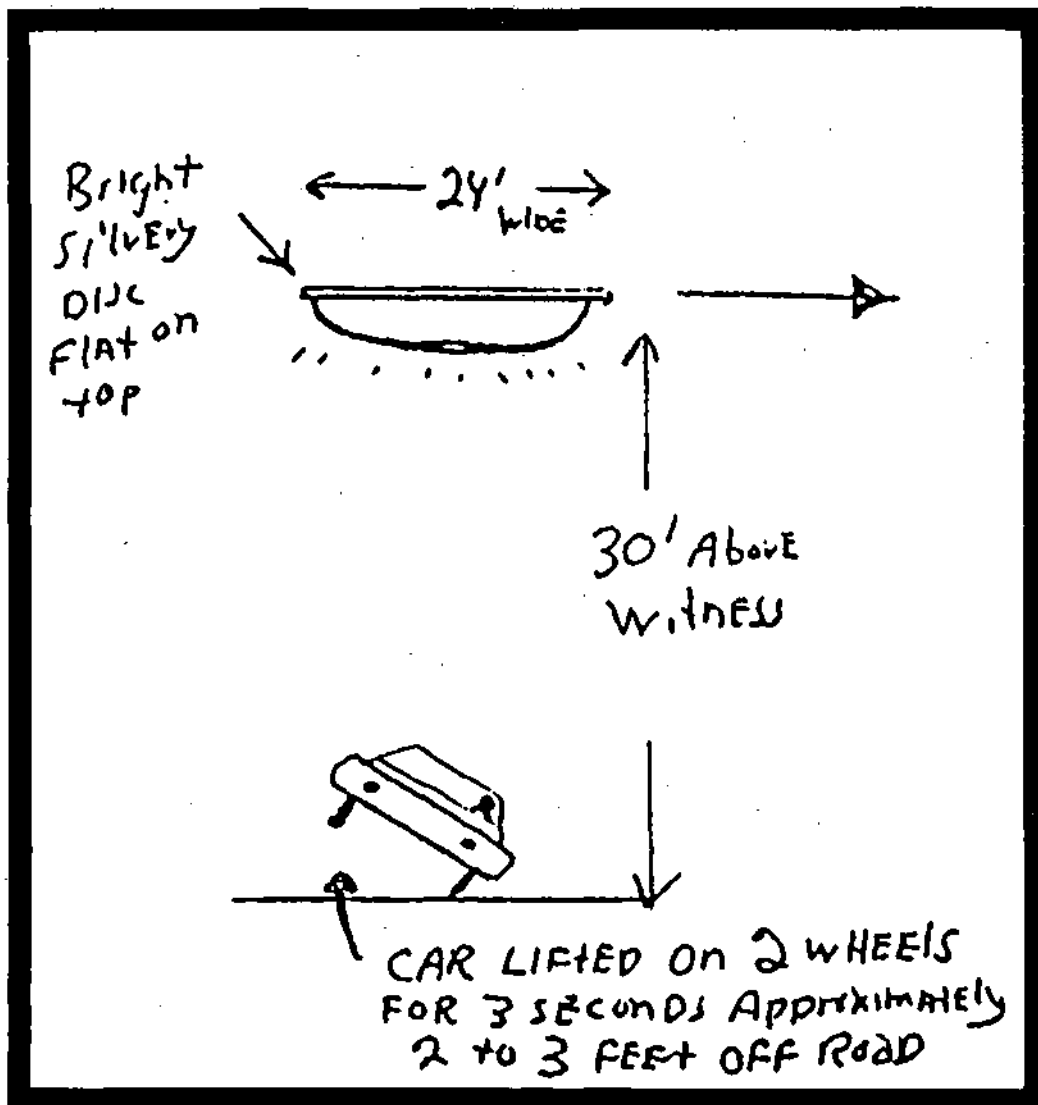 Bright
SilvEry
DISC
FlAt on
top
24'
wide
30' AbovE
WitnESS
CAR LIFtED On 2 wHEElS
FOR 3 SEconDS AppROxImAtEly
2 to 3 FEEt OFF RoAD